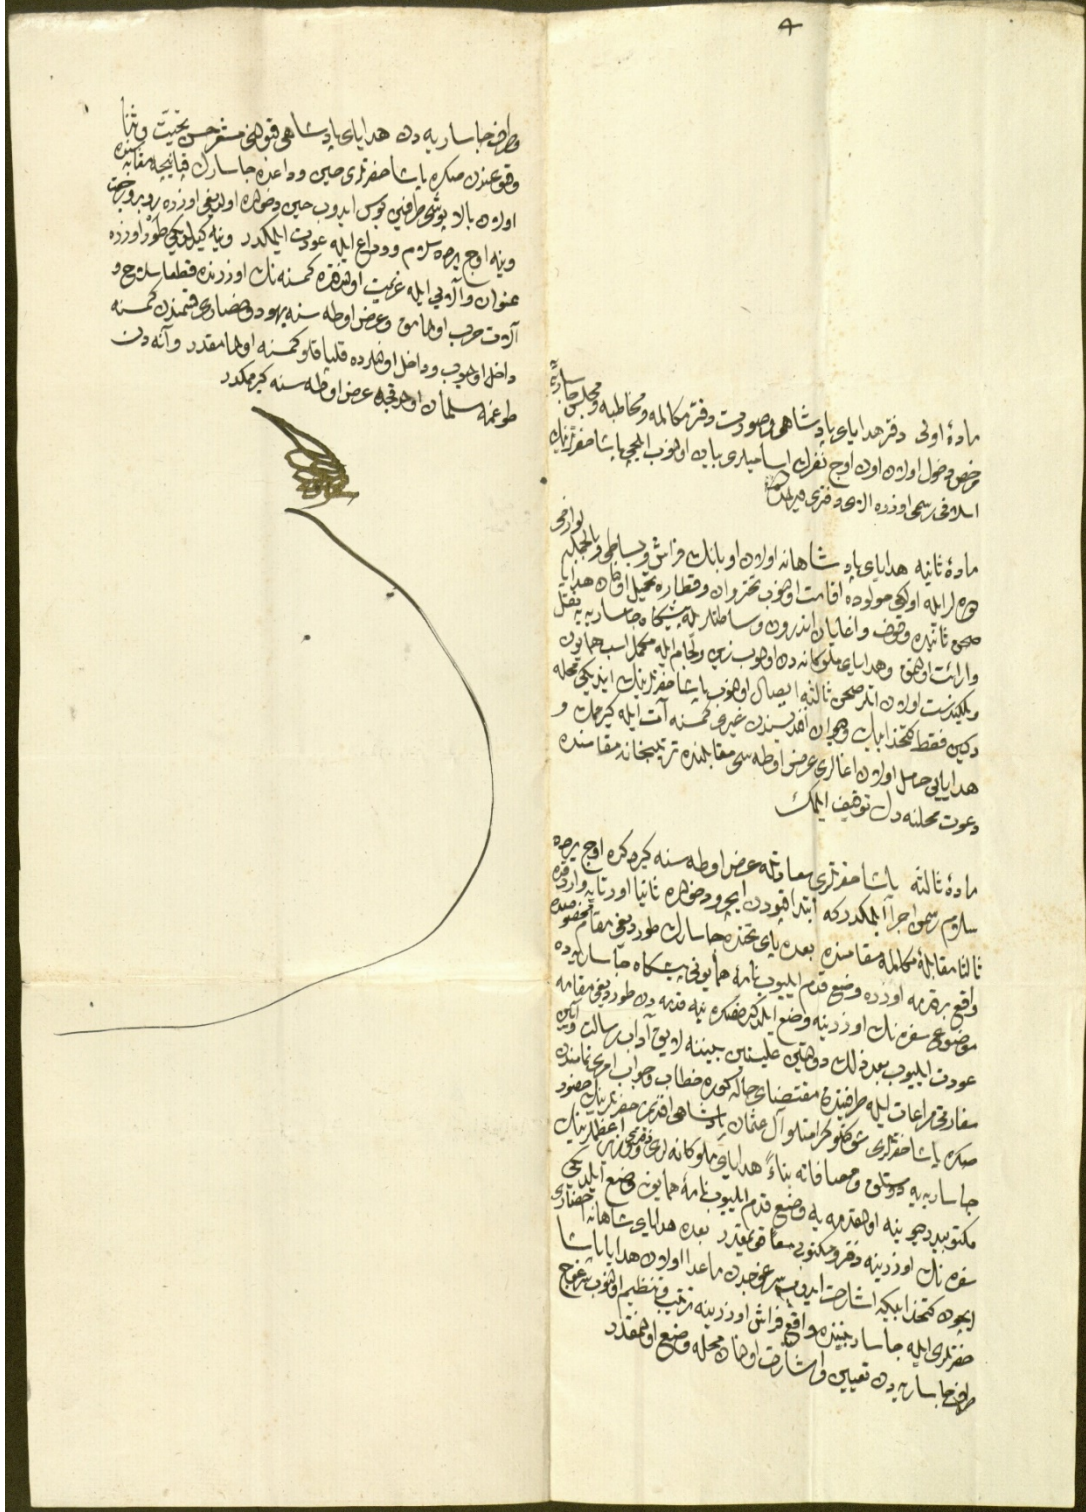 ٤
مادۀ اولی دفتر هدایای پادشاهی و صورت دفتر مکالمه و مخاطبه و مجلس جاساریه
مرخص دخول اولان اون اوچ نفرك اسامیلری بیان اولنوب ایلچی پاشا حضرتلرینك
اسلافی رسمی اوزره الذی دفتری ویرلمك
مادۀ ثانیه هدایای پادشاهانه اولان اوبانك فراش و بساطی و بالجمله لوازمی
ایله اولکی حولوده اقامت اولنوب تختروان و قطاره تحمیل اولنان هدایا
صحن ثانیده وقوف و اغایان اندرون وساطتلریله پیشکاه جاساریه یه نقل
وارائت اولنمق و هدایای ملوکانه دن اولوب زین و لجام ایله مکمل اسب همایون
اولان اتلر صحن ثالثه ایصال اولنوب پاشا حضرتلرینك ایندیکی محله
دکین فقط کتخدا بك و دیوان افندیسندن غیری کمسنه آت ایله کیرمامك و
هدایایی حامل اولان اغالری عرض اوطه سی مقابلنده ترجیمانخانه مقامنده
دعوت محلنه دك توقیف ایلمك
مادۀ ثالثه پاشا حضرتلری معاونتله عرض اوطه سنه کیردکده اوچ یرده
سلام رسمی اجرا ایلمکدر که ابتدا قپودن ایچرو دخولده ثانیا اورتایه واردقده
ثالثا مقابلۀ مکالمه مقامنده بعده پای تختده جاسارك طوردیغی مقام مخصوصده
واقع بر قدمه اوزره وضع قدم ایلیوب نامۀ همایونی پیشکاه جاساریه ده
موضوع سفره نك اوزرینه وضع ایلدکدنصکره ینه قدمه دن طوردیغی مقامه
عودت ایلیوب بعد ذلك دولتین علیتین بیننه لایق آداب رسالت و آیین
سفارتی مراعات ایله طرفیندن مقتضای حاله کوره خطاب و جواب امری تمامنده
صکره پاشا حضرتلری شوکتلو کرامتلو آل عثمان پادشاهی افندمز حضرتلرینك حضور
جاساریه یه دوستلق و مصافاته بناءً هدایای ملوکانه لری دفتری و وزیر اعظملرینك
مکتوبیدر دیو ینه اول قدمه یه وضع قدم ایلیوب نامۀ همایون وضع ایلدیکی
سفره نك اوزرینه دفتر و مکتوبی معا قویمقدر بعده هدایای شاهانه احضاری
ایچون کتخدا بکه اشارت ایدوب سرغوجدن ماعدا اولان هدایا پاشا
حضرتلری ایله جاسار بیننده واقع فراش اوزرینه ترتیب و تنظیم اولنوب سرغوج
طرف جاساریه دن تعیین و اشارت اولنان محله وضع اولنمقدر
و طرف جاساریه دن هدایای پادشاهی قبولنی مشعر حسن تحیت و ثنا
وقوعندن صکره پاشا حضرتلری حین وداعده جاسارك قپانیچه مقابله سنده
اولان بالاپوشی طرفینی بوس ایدوب حین دخولده اولدیغی اوزره رو برو رجعت
وینه اوچ یرده سلام و وداع ایله عودت ایلمکدر وینه کلدیکی طور اوزره
عنوان و آلایی ایله عزیمت اولندقده کمسنه نك اوزرنده قطعا سلاح و
آلات حرب اولمامق و عرض اوطه سنه یهود و نصاری قسمندن کمسنه
داخل اولمیوب و داخل اولنلرده قلپاقلو کمسنه اولمامقدر و آنه دن
طوغمه مسلمان اولمدقجه عرض اوطه سنه کیرمامکدر